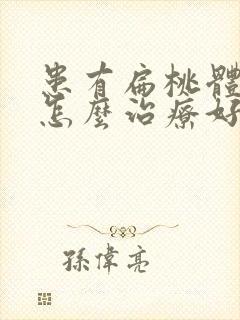 患有扁桃體
怎麼治療好
孫偉亮